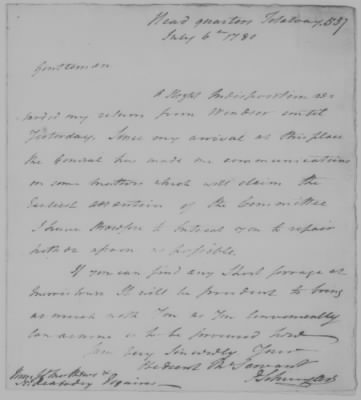 Head quarters Totaway
July 6th 1780
Gentlemen
A slight Indisposition re-
tarded my return from Windsor until
Yesterday. Since my arrival at this place
the General has made me communications
on some matters which will claim the
Earliest attention of the Committee
I have therefore to Intreat you to repair
hither as soon as possible.
If you can find any Short forage at
Morris town It will be prudent to bring
as much with You as You Conveniently
can as none is to be procured here
I am Very Sincerely Your
Obedient Hu Servant
Ph Schuyler
Mathews &
N. Peabody Esquires